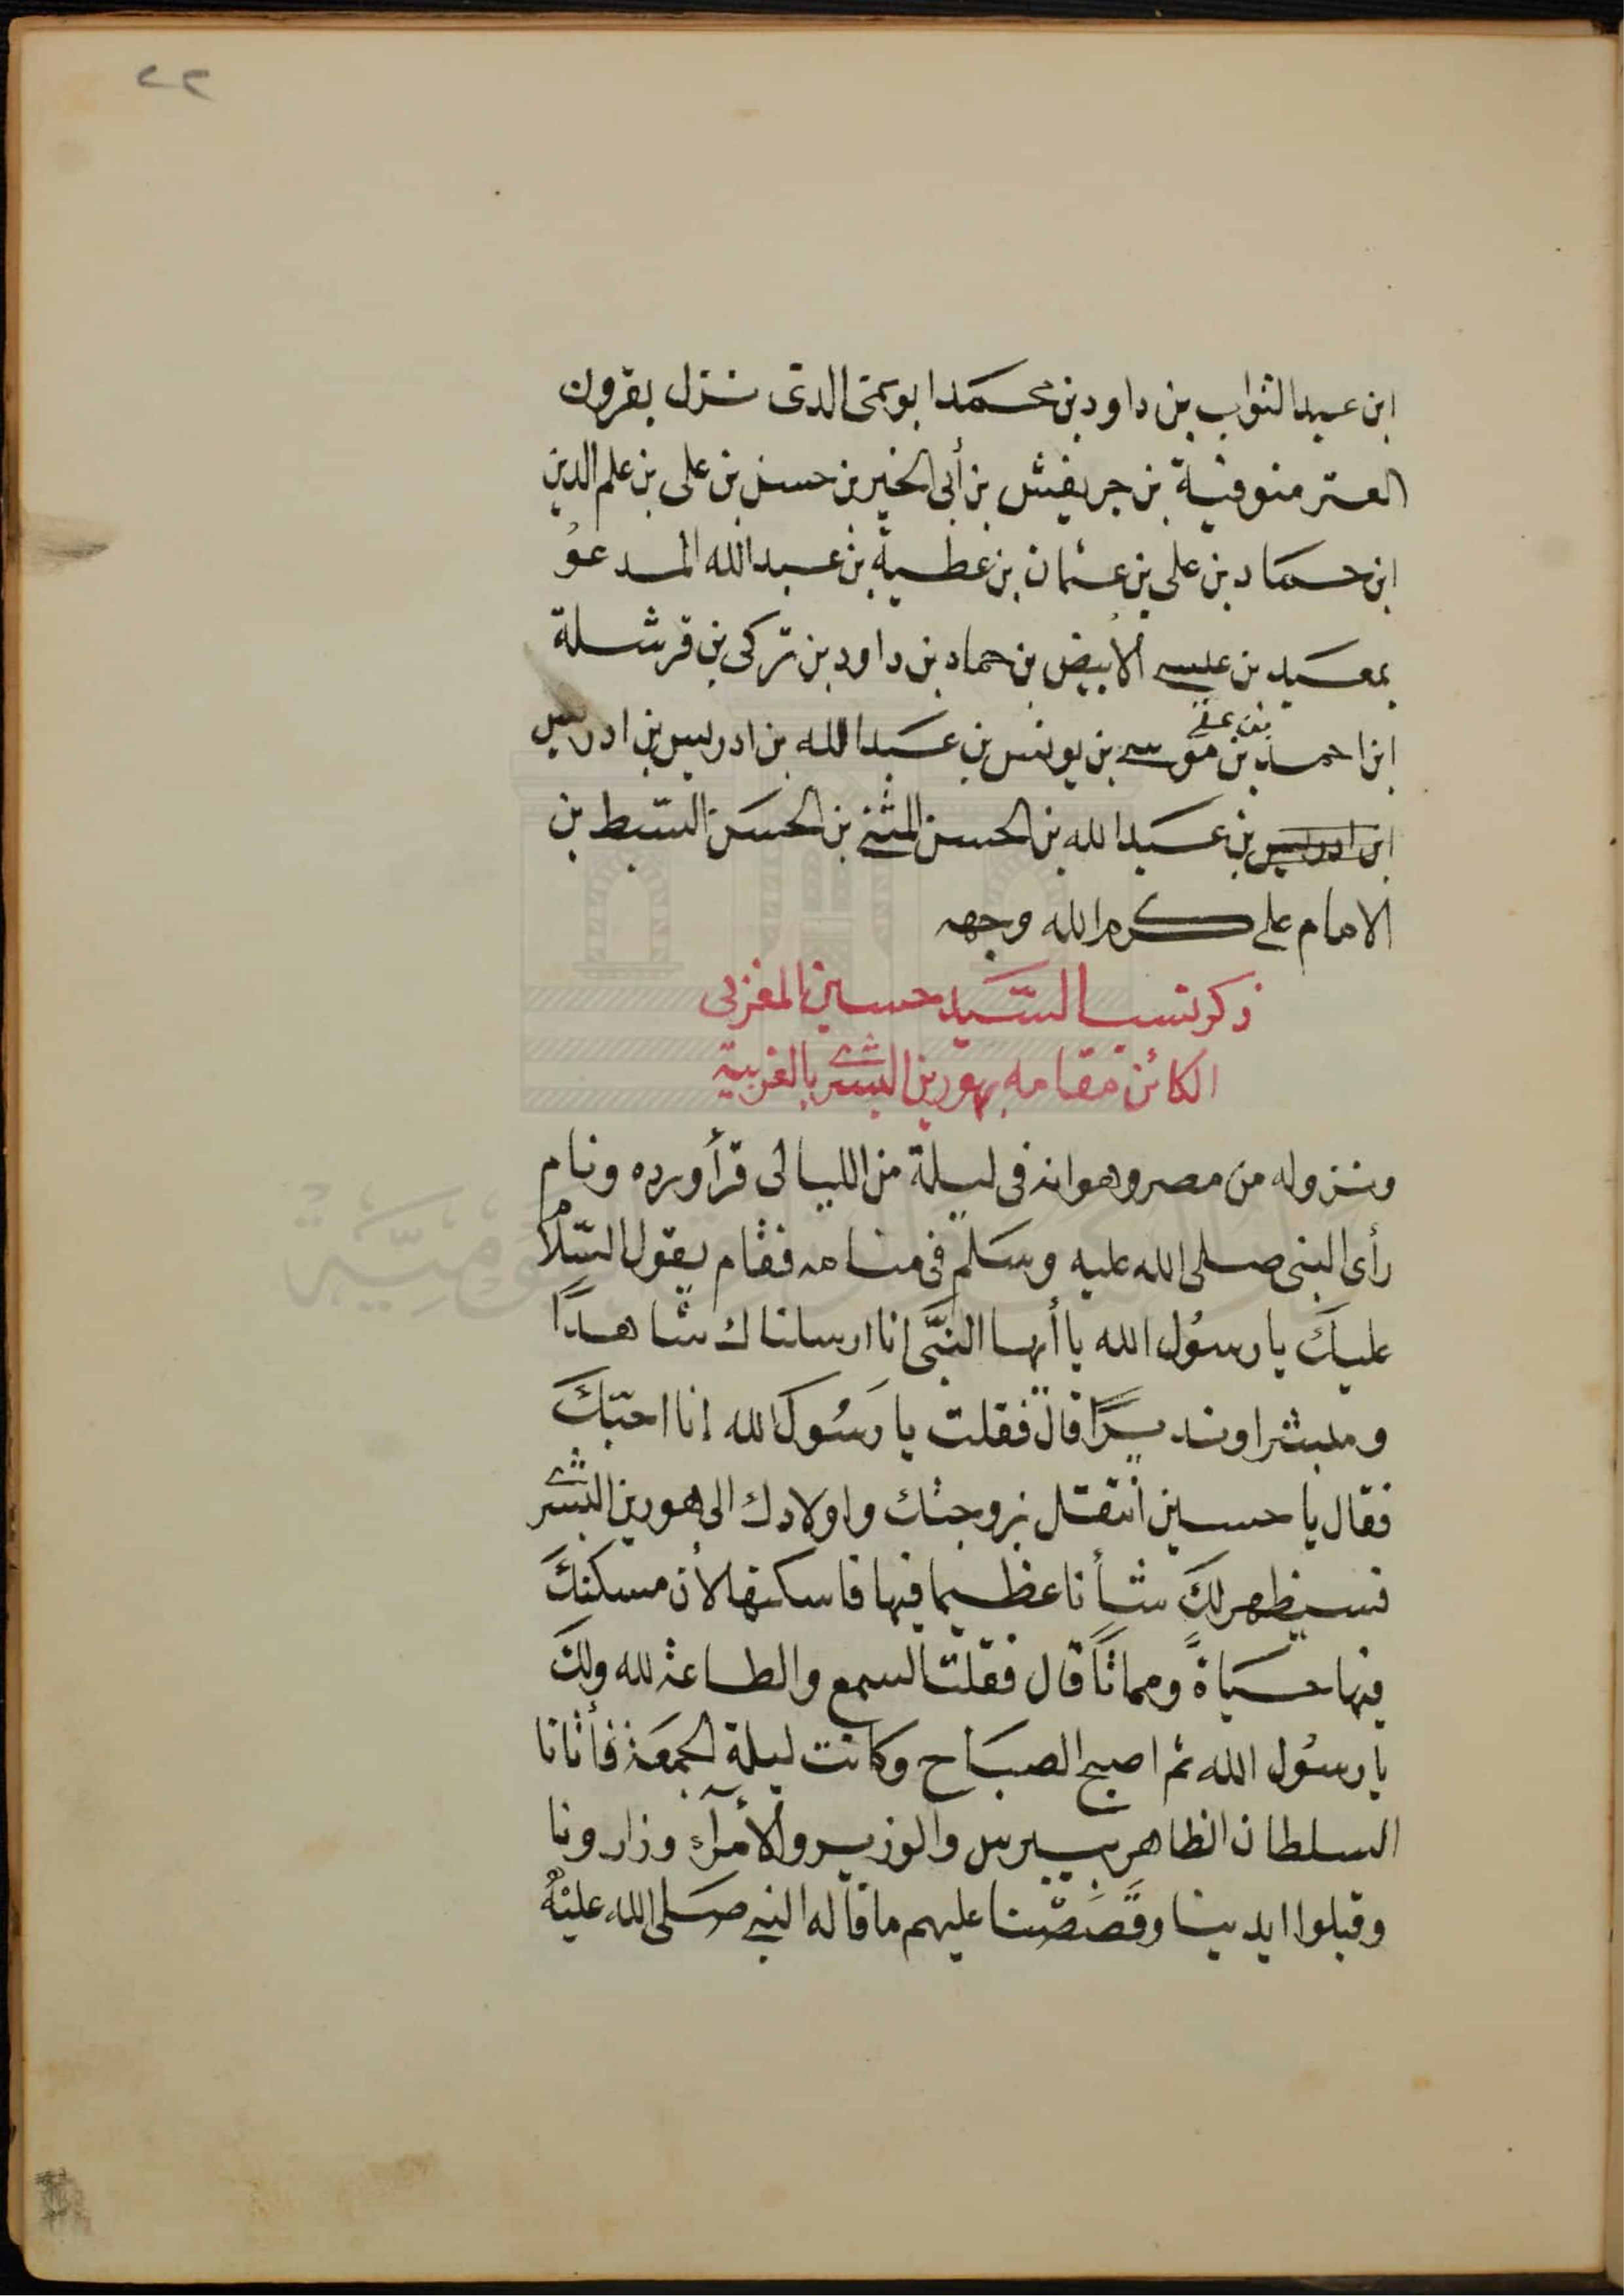 ٢٢
ابن عبد التواب بن داود بن محمد ابو يحيى الذى نزل بقرون
العتر منوفية بن جريفش بن أبى الخير بن حسن بن على بن علم الدين
ابن حماد بن على بن عثمان بن عطية بن عبد الله المدعو
بمعبد بن عيسى الأبيض بن حماد بن داود بن تركى بن قرشلة
ابن احمد بن على بن موسى بن يونس بن عبد الله بن ادريس بن ادريس
ابن ادريس بن عبد الله بن الحسن المثنى بن الحسن السبط بن
الامام على كرم الله وجهه
ذكر نسب السيد حسين المغربى
الكائن مقامه بهورين البشرى بالغربية
ونزوله من مصر وهو انه فى ليلة من الليالى قرأ ورده ونام
رأى النبى صلى الله عليه وسلم فى منامه فقام يقول السّلام
عليك يا رسُول الله يا أيها النبّى انا ارسلناك شاهدًا
ومبشرا ونذيرًا قال فقلت يا رسُول الله انا احبّكَ
فقال يا حسين انتقل بزوجتك واولادك الى هورين البشرى
فسيظهر لكَ شأنا عظيما فيها فاسكنها لأن مسكنكَ
فيها حيَاةً ومماتًا قال فقلت السمع والطاعة لله ولكَ
يا رسُول الله ثم اصبح الصبَاح وكانت ليلة الجمعَة فأتانا
السلطان الظاهر بيبرس والوزير والأمرآء وزارونا
وقبلوا ايدينا وقصَصْنا عليهم ما قاله النبى صَلى الله عليْهُ